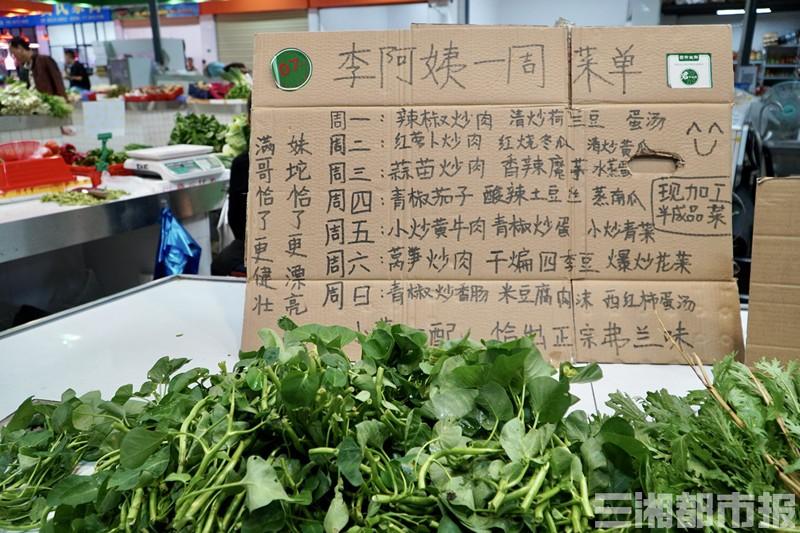 李阿姨一周菜单
周一：辣椒炒肉 清炒荷兰豆 蛋汤
周二：红萝卜炒肉 红烧冬瓜 清炒黄瓜
周三：蒜苗炒肉 香辣魔芋 水蒸蛋
周四：青椒茄子 酸辣土豆丝 蒸南瓜
周五：小炒黄牛肉 青椒炒蛋 小炒青菜
周六：莴笋炒肉 干煸四季豆 爆炒花菜
周日：青椒炒香肠 米豆腐肉沫 西红柿蛋汤
配 恰出正宗弗兰味
妹坨恰了更漂亮
满哥恰了更健壮
现加工
半成品菜
07
三湘都市报